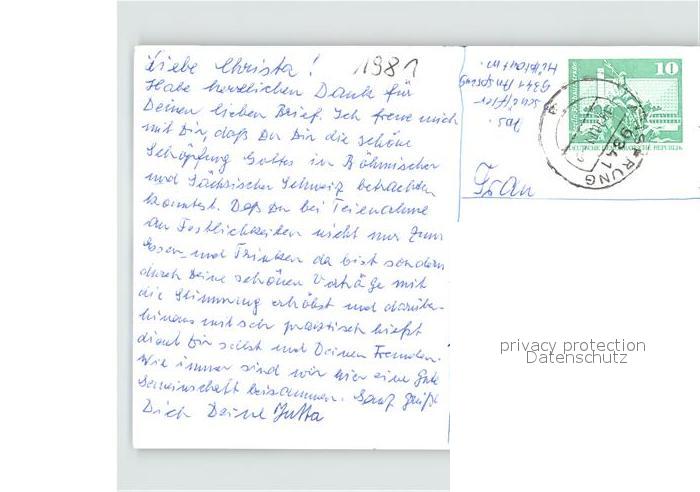 Liebe Christa! 1981
Habe herzlichen Dank für
Deinen lieben Brief. Ich freue mich
mit Dir, daß Du Dir die schöne
Schöpfung Gottes in Böhmischer
und Sächsischer Schweiz betrachten
konntest. Daß Du bei Teilnahme
an Festlichkeiten nicht nur zum
Essen und Trinken da bist sondern
durch Deine schönen Vorträge mit
die Stimmung erhöbst und darüber
hinaus mit sehr praktisch hilfst
dient Dir selbst und Deinen Freunden.
Wie immer sind wir hier eine gute
Gemeinschaft beisammen. Ganz
Dich Deine Jutta
Abs.
9341 Ansprung
10
DEUTSCHE DEMOKRATISCHE REPUBLIK
ANSPRUNG
9341
Frau
privacy protection
Datenschutz